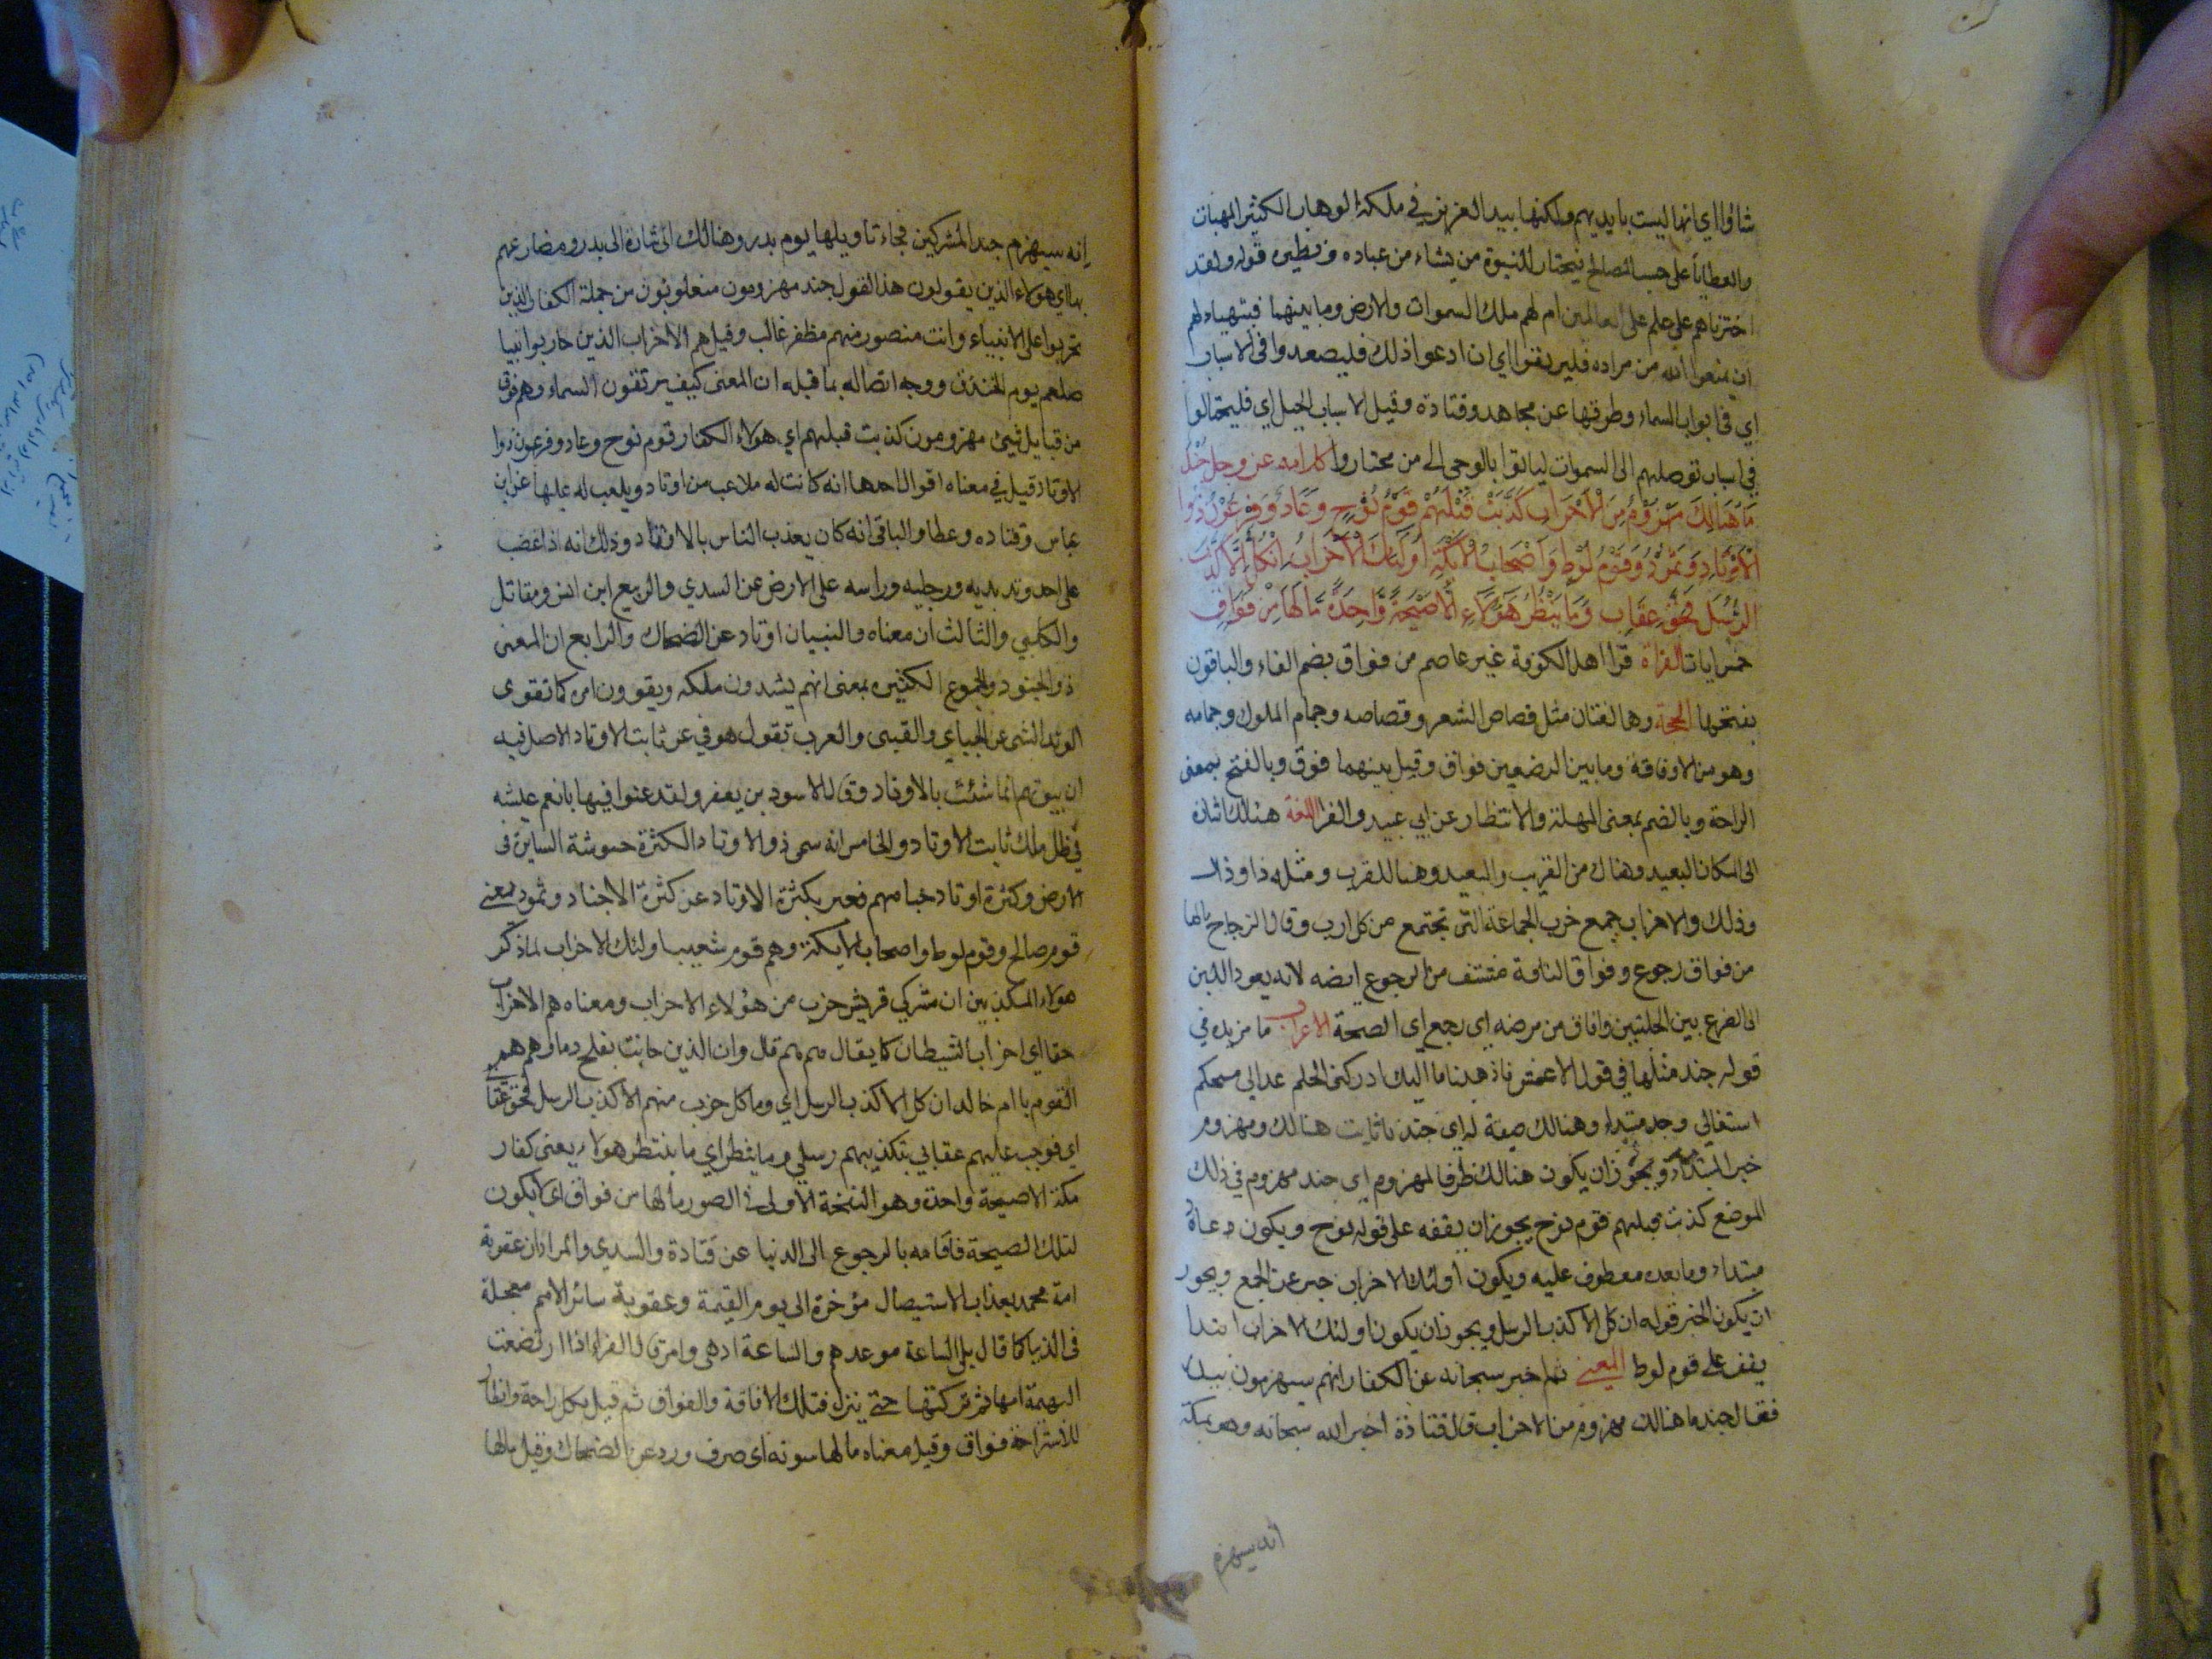 شاؤا اي انها ليست بايديهم ولكنها بيد العزيز في ملكه الوهاب الكثير الهبات
والعطايا على حسب المصالح فيختار للنبوة من يشاء من عباده ونظيره قوله ولقد
اخترناهم على علم على العالمين ام لهم ملك السموات والارض وما بينهما فيتهياء لهم
ان يمنعوا الله من مراده فليرتقوا اي ان ادعوا ذلك فليصعدوا في الاسباب
اي في ابواب السماء وطرقها عن مجاهد وقتادة وقيل الاسباب الحيل اي فليحتالوا
في اسباب توصلهم الى السموات لياتوا بالوحي الى من محتاروا كلامه عز وجل جُنْدٌ
مَا هُنَالِكَ مَهْزُوْمٌ مِنَ الْاَحْزَابِ كَذَّبَتْ قَبْلَهُمْ قَوْمُ نُوْحٍ وَعَادٌ وَفِرْعَوْنُ ذُوا
الْاَوْتَادِ وَثَمُوْدُ وَقَوْمُ لُوْطٍ وَاَصْحَابُ الْاَيْكَةِ اُولَئِكَ الْاَحْزَابُ اِنْ كُلٌّ اِلَّا كَذَّبَ
الرُّسُلَ فَحَقَّ عِقَابِ وَمَا يَنْظُرُ هَؤُلَاءِ اِلَّا صَيْحَةً وَّاحِدَةً مَّا لَهَا مِنْ فَوَاقٍ
خمس ايات القراة قرا اهل الكوفة غير عاصم من فواق بضم الفاء والباقون
بفتحها الحجة وهما لغتان مثل قصاص الشعر وقصاصه وجمام الملوك وجمامه
وهو من الافاقة وما بين الرضعين فواق وقيل بينهما فوق وبالفتح بمعنى
الراحة وبالضم بمعنى المهلة والانتظار عن ابي عبيد والفرا اللغة هنالك اشارة
الى المكان البعيد وهناك من القريب والبعيد وهنا للقرب ومثله ذا وذاك
وذلك والاحزاب جمع حزب الجماعة التى تجتمع من كل ارب وقال الزجاج مالها
من فواق رجوع وفواق الناقة مشتق من الرجوع ايضه لانه يعود اللبن
الى الضرع بين الحلبتين وافاق من مرضه اي رجع اي الصحة الاعراب ما مزيده في
قوله جند مثلها في قول الاعشى فاذهبنا ما اليك ادركنى الحلم عدانى
وجند مبتداء وهنالك صفة له اى جند ثابت هنالك ومهزوم
خبر المبتداء ويجوز ان يكون هنالك ظرفا لمهزوم اى جند مهزوم في ذلك
الموضع كذبت قبلهم قوم نوح يجوز ان يقفه على قوله نوح ويكون وعاد
مبتداء وما بعده معطوف عليه ويكون اولئك الاحزاب خبر عن الجمع ويجوز
ان يكون الخبر قوله ان كل الا كذب الرسل ويجوز ان يكون اولئك الاحزاب ابتدا
يقف على قوم لوط المعنى ثم اخبر سبحانه عن الكفار انهم سيهزمون ببدر
فقال جند ما هنالك مهزوم من الاحزاب قال قتادة اخبر الله سبحانه وهو بمكة
انه سيهزم
انه سيهزم جند المشركين فجاء تاويلها يوم بدر وهنالك اشارة الى بدر ومصارعهم
بها اى هولاء الذين يقولون هذا القول جند مهزومون مغلوبون من جملة الكفار الذين
تحزبوا على الانبياء وانت منصور منهم مظفر غالب وقيل هم الاحزاب الذين حاربوا نبيا
صلعم يوم الخندق ووجه اتصاله بما قبله ان المعنى كيف يرتقون السماء وهم فرق
من قبايل شتى مهزومون كذبت قبلهم اي هولاء الكفار قوم نوح وعاد وفرعون ذوا
الاوتاد قيل في معناه اقوال احدها انه كانت له ملاعب من اوتاد ويلعب له عليها عن ابن
عباس وقتاده وعطا والباقي انه كان يعذب الناس بالاوتاد وذلك انه اذا غضب
على احد وتد يديه ورجليه وراسه على الارض عن السدي والربيع ابن انس ومقاتل
والكلبي والثالث ان معناه والبنيان اوتاد عن الضحاك والرابع ان المعنى
ذو الجنود والجموع الكثيره بمعنى انهم يشدون ملكه ويقوون امره كما تقوى
الوتد الشى عن الجباي والقبى والعرب تقول هو في عز ثابت الاوتاد الاصل فيه
ان بيوتهم انما شئت بالاوتاد وقال الاسود بن يعفر ولقد عنوا فيها بانعم عيشه
في ظل ملك ثابت الاوتاد والخامس انه سمى ذو الاوتاد لكثرة جيوشه السايرة في
الارض وكثرة اوتاد خيامهم فعبر بكثرة الاوتاد عن كثرة الاجناد وثمود يعنى
قوم صالح وقوم لوط واصحاب الايكة وهم قوم شعيب اولئك الاحزاب لما ذكر
هولاء المكذبين ان مشركي قريش حزب من هؤلاء الاحزاب ومعناه هم الاحزاب
حقا اى احزاب الشيطان كما يقال هم هم قال وان الذين حانت بفلج دماؤهم هم
القوم يا ام خالد ان كل الا كذب الرسل اي وما كل حزب منهم الا كذب الرسل فحق عقاب
اي فوجب عليهم عقابي بتكذيبهم رسلي وما ينظر اي ما ينتظر هولاء يعنى كفار
مكة الا صيحة واحدة وهو النفخة الاولى في الصور مالها من فواق اى لا يكون
لتلك الصيحة فاقامه بالرجوع الى الدنيا عن قتادة والسدي والمراد ان عقوبة
امة محمد بعذاب الاستيصال مؤخرة الى يوم القيمة وعقوبة سائر الامم معجلة
فى الدنيا كما قال بل الساعة موعدهم والساعة ادهى وامر قال الفراء اذا ارتضعت
البهمة امها ثم تركتها حتى ينزل فتلك الافاقة والفواق ثم قيل لكل راحة وانظار
للاستراحة فواق وقيل معناه مالها سونة اى صرف ورد عن الضحاك وقيل مالها